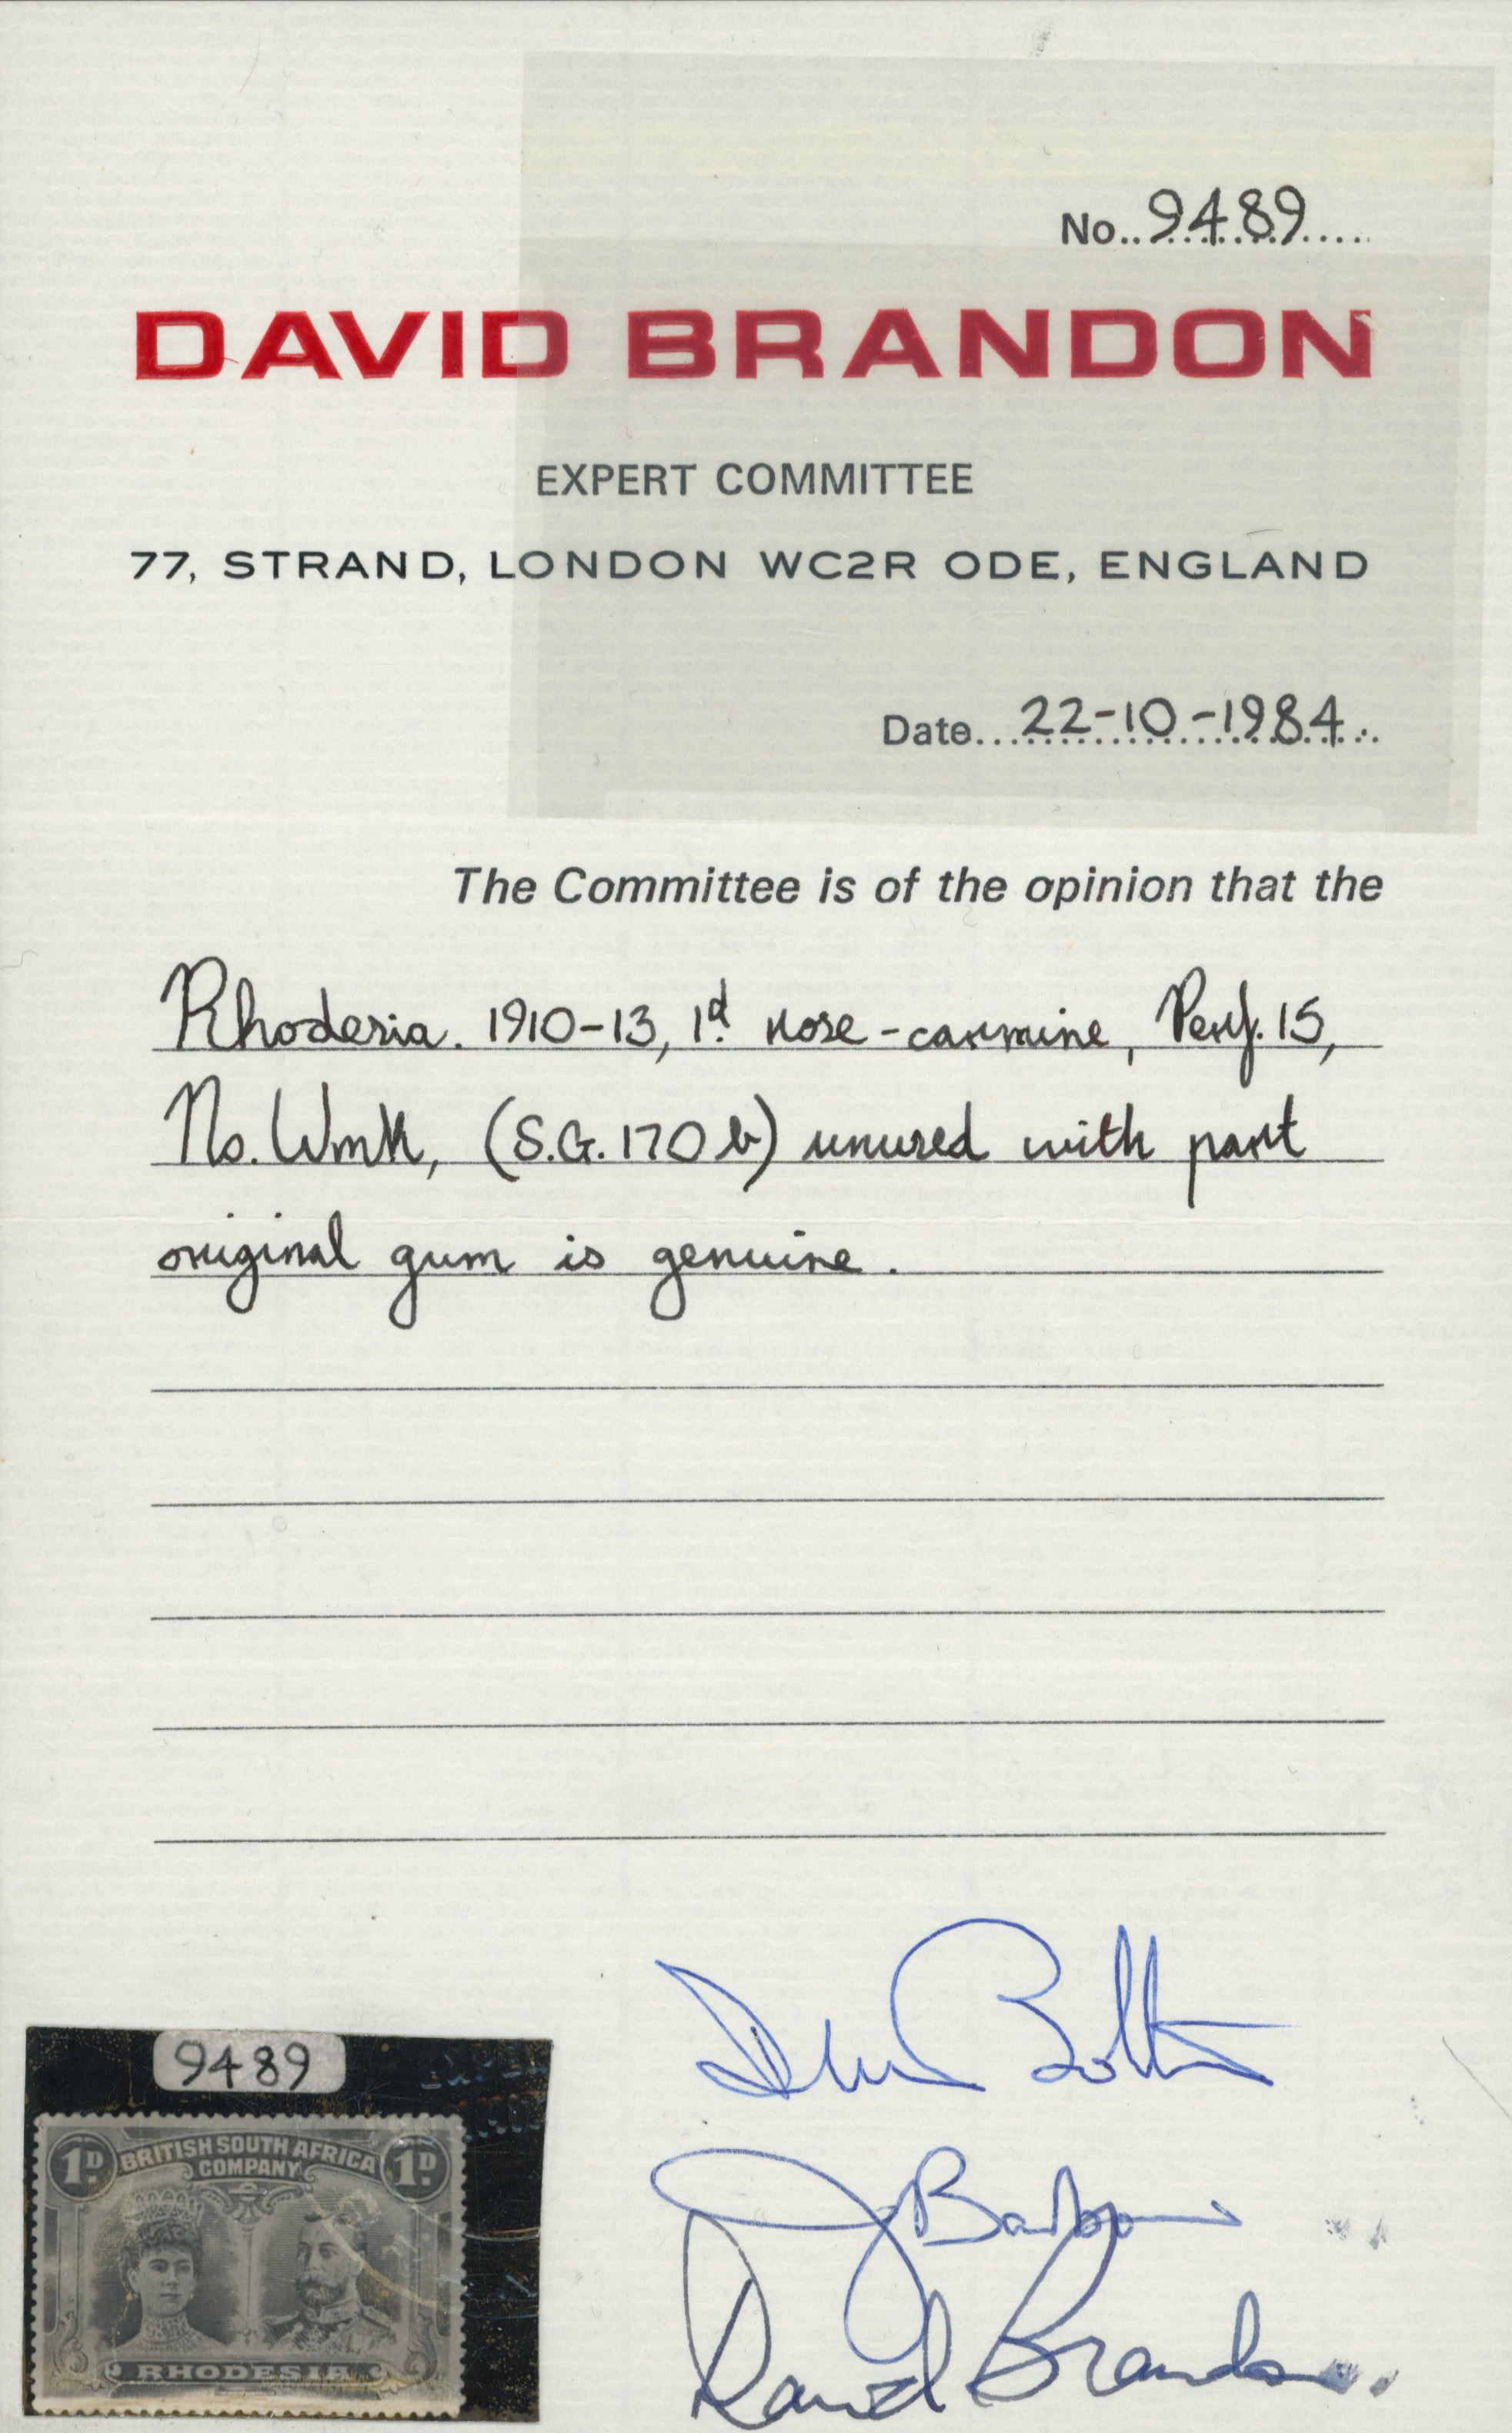 No..9489....
DAVID BRANDON
EXPERT COMMITTEE
77, STRAND, LONDON WC2R ODE, ENGLAND
Date...22-10-1984..
The Committee is of the opinion that the
Rhodesia. 1910-13, 1d. rose-carmine, Perf. 15,
No. Wmk, (S.G. 170b) unused with part
original gum is genuine.
David Brandon.
9489
1D BRITISH SOUTH AFRICA 1D
COMPANY
RHODESIA